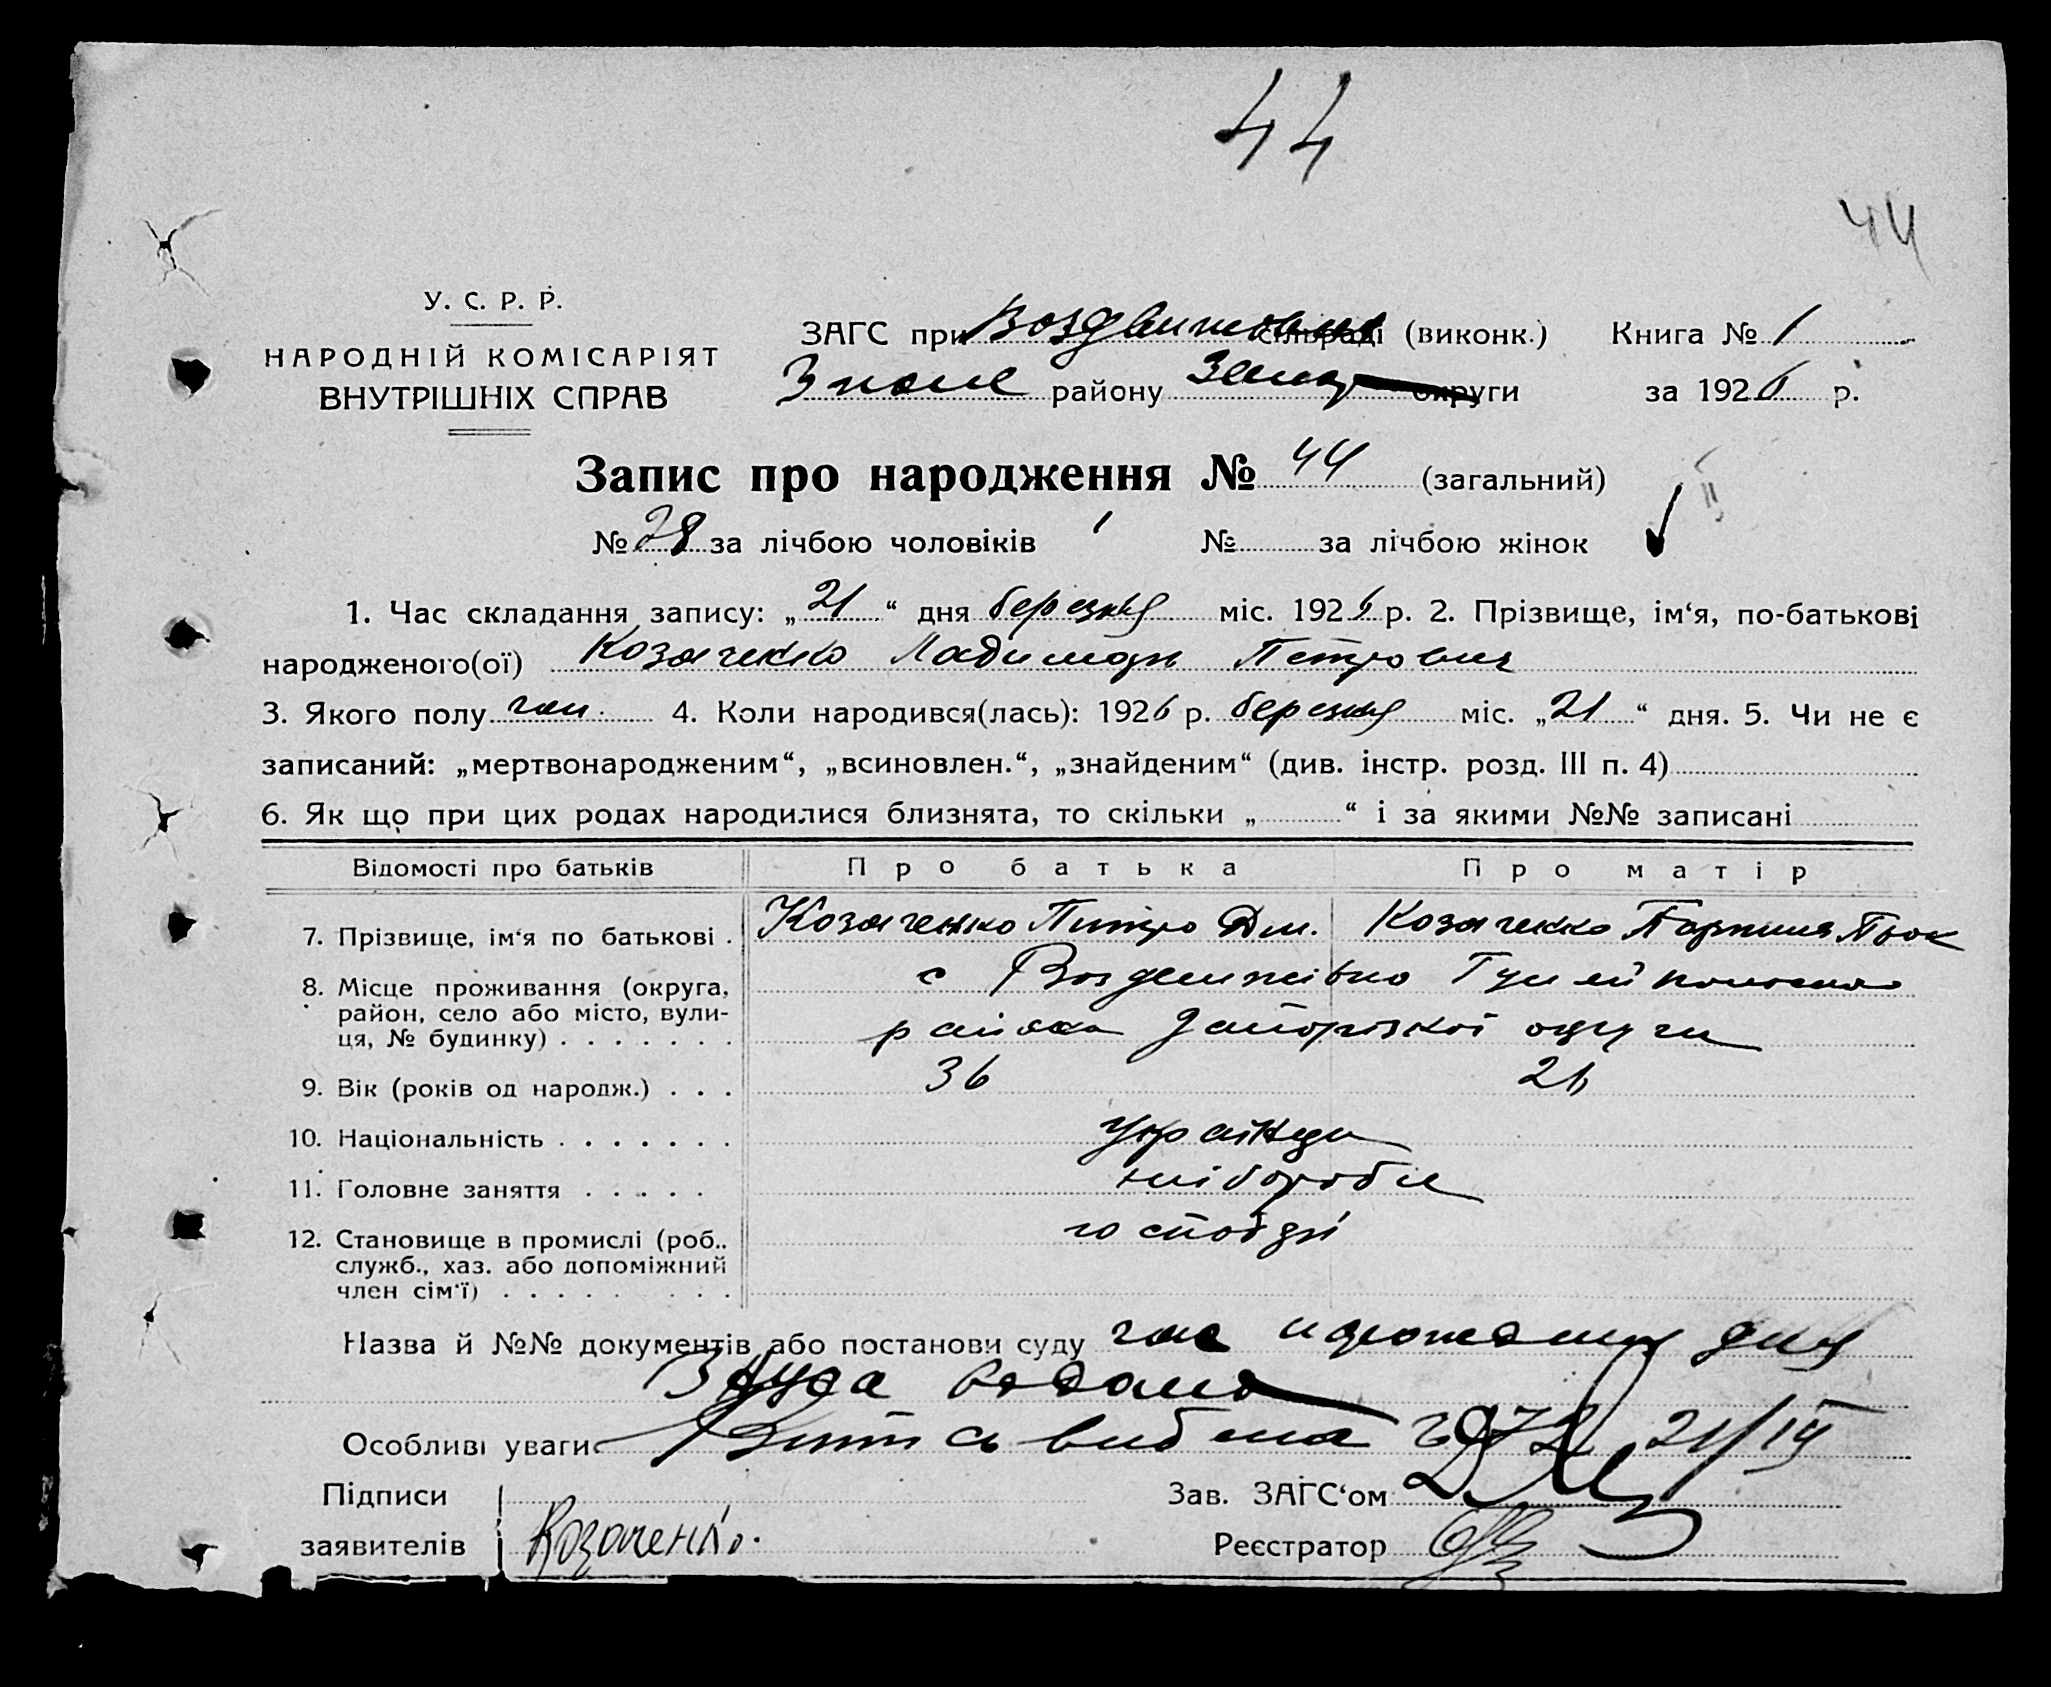 44
44
У. С. Р. Р.
НАРОДНІЙ КОМІСАРІЯТ
ВНУТРІШНІХ СПРАВ
ЗАГС при сільраді (виконк.) Книга № 1
району округи за 1926 р.
Запис про народження № 44 (загальний)
№ 28 за лічбою чоловіків № за лічбою жінок
1. Час складання запису: „ 21 “ дня березня міс. 1926 р. 2. Прізвище, ім‘я, по-батькові
народженого(ої) Козаченко Петрович
3. Якого полу чол. 4. Коли народився(лась): 1926 р. березня міс. „ 21 “ дня. 5. Чи не є
записаний: „мертвонародженим“, „всиновлен.“, „знайденим“ (див. інстр. розд. III п. 4)
6. Як що при цих родах народилися близнята, то скільки „ “ і за якими №№ записані
Відомості про батьків Про батька Про матір
7. Прізвище, ім‘я по батькові . Козаченко Петро Дм. Козаченко
8. Місце проживання (округа, с Воздвижівка
район, село або місто, вули- району Запорізкої округи
ця, № будинку) . . . . . . .
9. Вік (років од народж.) . . . 36 26
10. Національність . . . . . . . Українці
11. Головне заняття . . . . . хлібороби
12. Становище в промислі (роб.. господарі
служб., хаз. або допоміжний
член сім‘ї) . . . . . . . .
Назва й №№ документів або постанови суду
Особливі уваги 21/IV
Підписи Зав. ЗАГС‘ом
заявителів Козаченко. Реєстратор